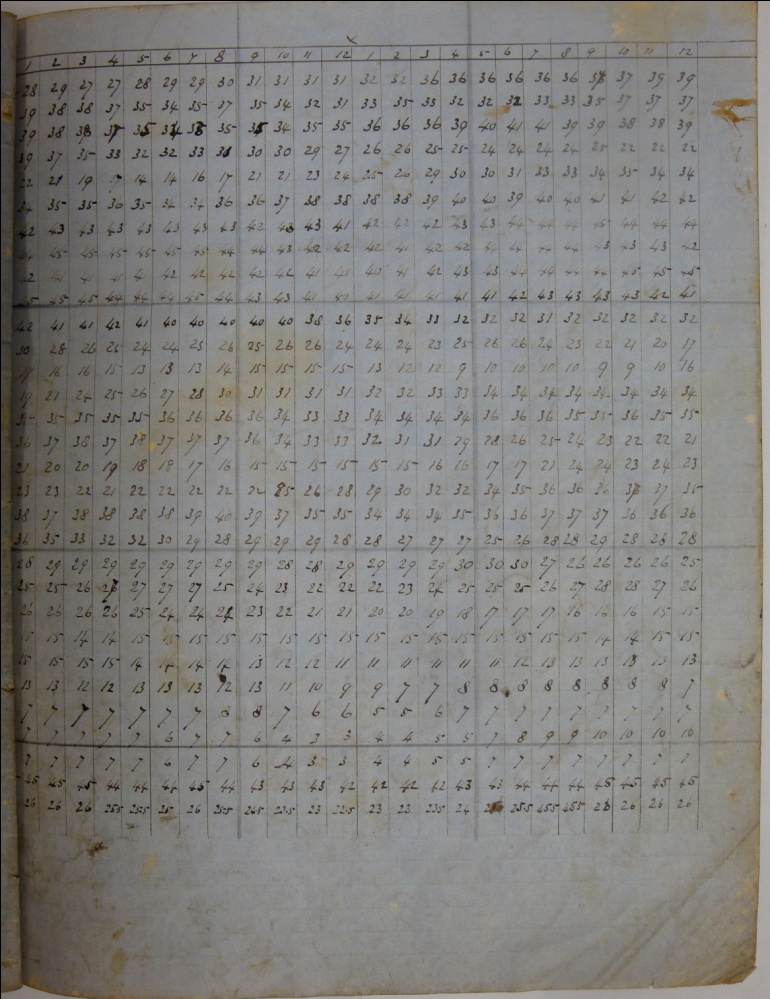 1 2 3 4 5 6 7 8 9 10 11 12 1 2 3 4 5 6 7 8 9 10 11 12
28 29 27 27 28 29 29 30 31 31 31 31 32 32 36 36 36 36 36 36 37 39 39
39 38 38 37 35 34 35 37 35 34 32 31 33 35 33 32 32 32 33 33 35 37 37 37
39 38 35 34 35 35 36 36 36 39 40 41 41 39 39 38 38 39
39 37 35 33 32 32 33 30 30 29 27 26 26 25 25 24 24 24 24 25 22 22 22
22 21 19 17 14 14 16 17 21 21 23 24 25 26 29 30 30 31 33 33 34 35 34 34
34 35 35 36 35 34 34 36 36 37 38 38 38 38 39 40 40 39 40 40 41 41 42 42
42 43 43 43 43 43 43 43 42 43 41 42 42 42 43 43 44 44 44 45 44 44 44
44 45 45 45 45 45 45 44 44 43 42 42 42 41 42 42 44 44 44 44 43 43 43 42
42 41 41 41 41 42 42 42 42 42 41 41 40 41 42 43 43 44 44 44 44 45 45 45
45 45 45 44 44 44 45 44 43 43 41 40 41 41 41 41 41 42 43 43 43 43 42 41
42 41 41 42 41 40 40 40 40 40 38 36 35 34 33 32 32 32 31 32 32 32 32 32
30 28 26 25 24 24 25 26 25 26 26 24 24 24 23 25 26 26 24 23 22 21 20 17
17 16 16 15 13 13 13 14 15 15 15 15 13 12 9 10 10 10 10 9 9 10 16
19 21 24 25 26 27 28 30 31 31 31 31 32 32 33 33 34 34 34 34 34 34 34 34
35 35 35 35 35 36 36 36 36 34 33 33 34 34 34 34 36 36 36 35 35 36 35 35
36 37 38 37 38 37 37 37 36 34 33 33 32 31 31 29 28 26 25 24 23 22 22 21
21 20 20 19 18 18 17 16 15 15 15 15 15 15 16 16 17 17 21 24 24 23 24 23
23 23 22 21 22 22 22 22 22 25 26 28 29 30 32 32 34 35 36 36 36 37 35
38 37 38 38 38 38 39 40 39 37 35 35 34 34 34 35 36 36 37 37 37 36 36 36
36 35 33 32 32 30 29 28 29 29 29 28 28 27 27 27 25 26 28 28 29 28 28 28
28 29 29 29 29 29 29 29 29 28 28 29 29 29 29 30 30 30 27 26 26 26 26 25
25 25 26 27 27 27 25 24 23 22 22 22 23 24 25 25 25 26 27 28 28 27 26
26 26 26 26 25 24 24 24 23 22 21 21 20 20 19 18 17 17 17 16 16 16 15 15
15 15 14 14 15 15 15 15 15 15 15 15 15 15 15 15 15 15 15 15 14 14 15 15
15 15 15 15 14 14 14 14 13 12 12 11 11 11 11 11 11 12 13 13 13 13 13 13
13 13 12 12 13 13 13 12 13 11 10 9 9 7 7 8 8 8 8 8 8 8 8 7
7 7 7 7 7 7 7 8 8 7 6 6 5 5 6 7 7 7 7 7 7 7 7 7
7 7 7 7 7 6 7 7 6 4 3 3 4 4 5 5 7 8 9 9 10 10 10 10
7 7 7 7 7 6 7 7 6 4 3 3 4 4 5 5 7 7 7 7 7 7 7 7
45 45 45 44 44 44 45 44 43 43 43 42 42 42 42 43 43 44 44 44 45 45 45 45
26 26 26 255 255 25 26 255 245 235 23 225 23 23 235 24 255 255 255 26 26 26 26